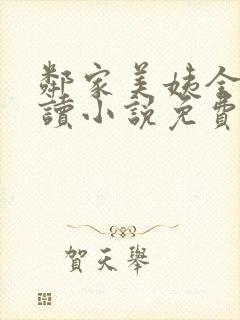 鄰家美姨全
讀小說免費
賀天舉